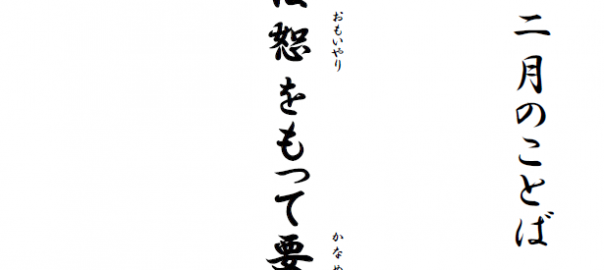 二月のことば
おもいやり
かなめ
恕をもって要